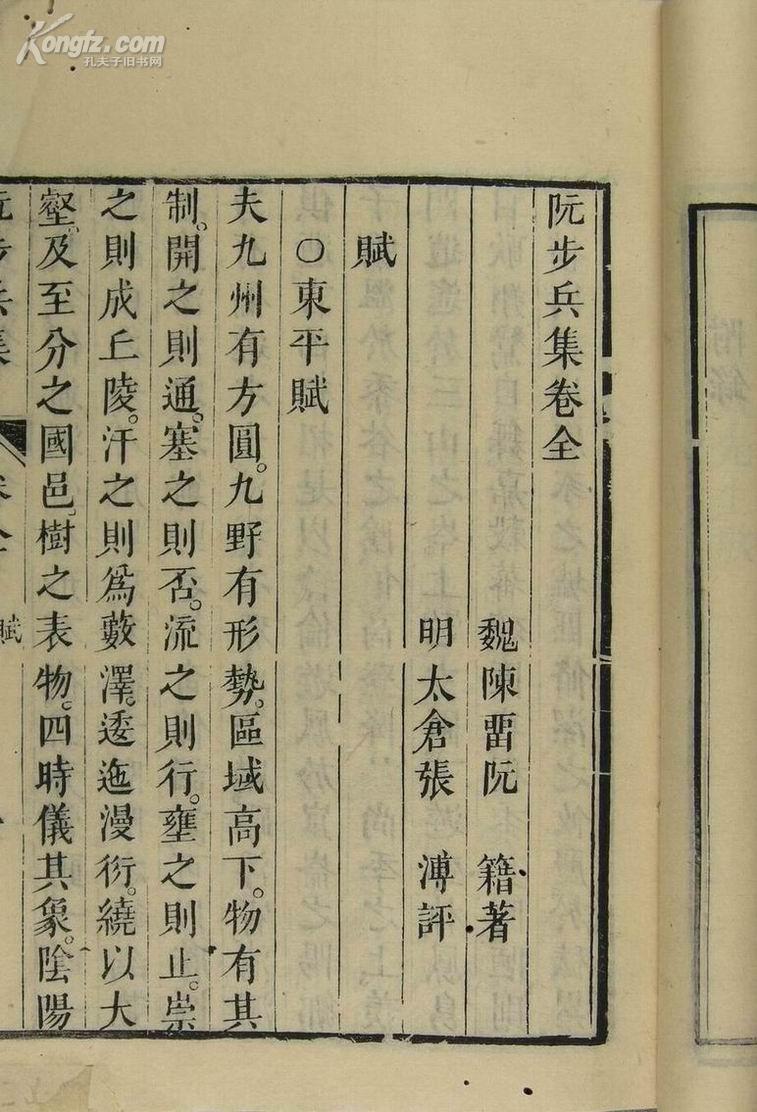 阮步兵集卷全
魏陳畱阮 籍著
明太倉張 溥評
賦
○東平賦
夫九州有方圓。九野有形勢。區域高下。物有其
制。開之則通。塞之則否。流之則行。壅之則止。崇
之則成丘陵。汙之則爲藪澤。逶迤漫衍。繞以大
壑。及至分之國邑。樹之表物。四時儀其象。陰陽
阮步兵集 卷全 賦
Kongfz.com
孔夫子旧书网